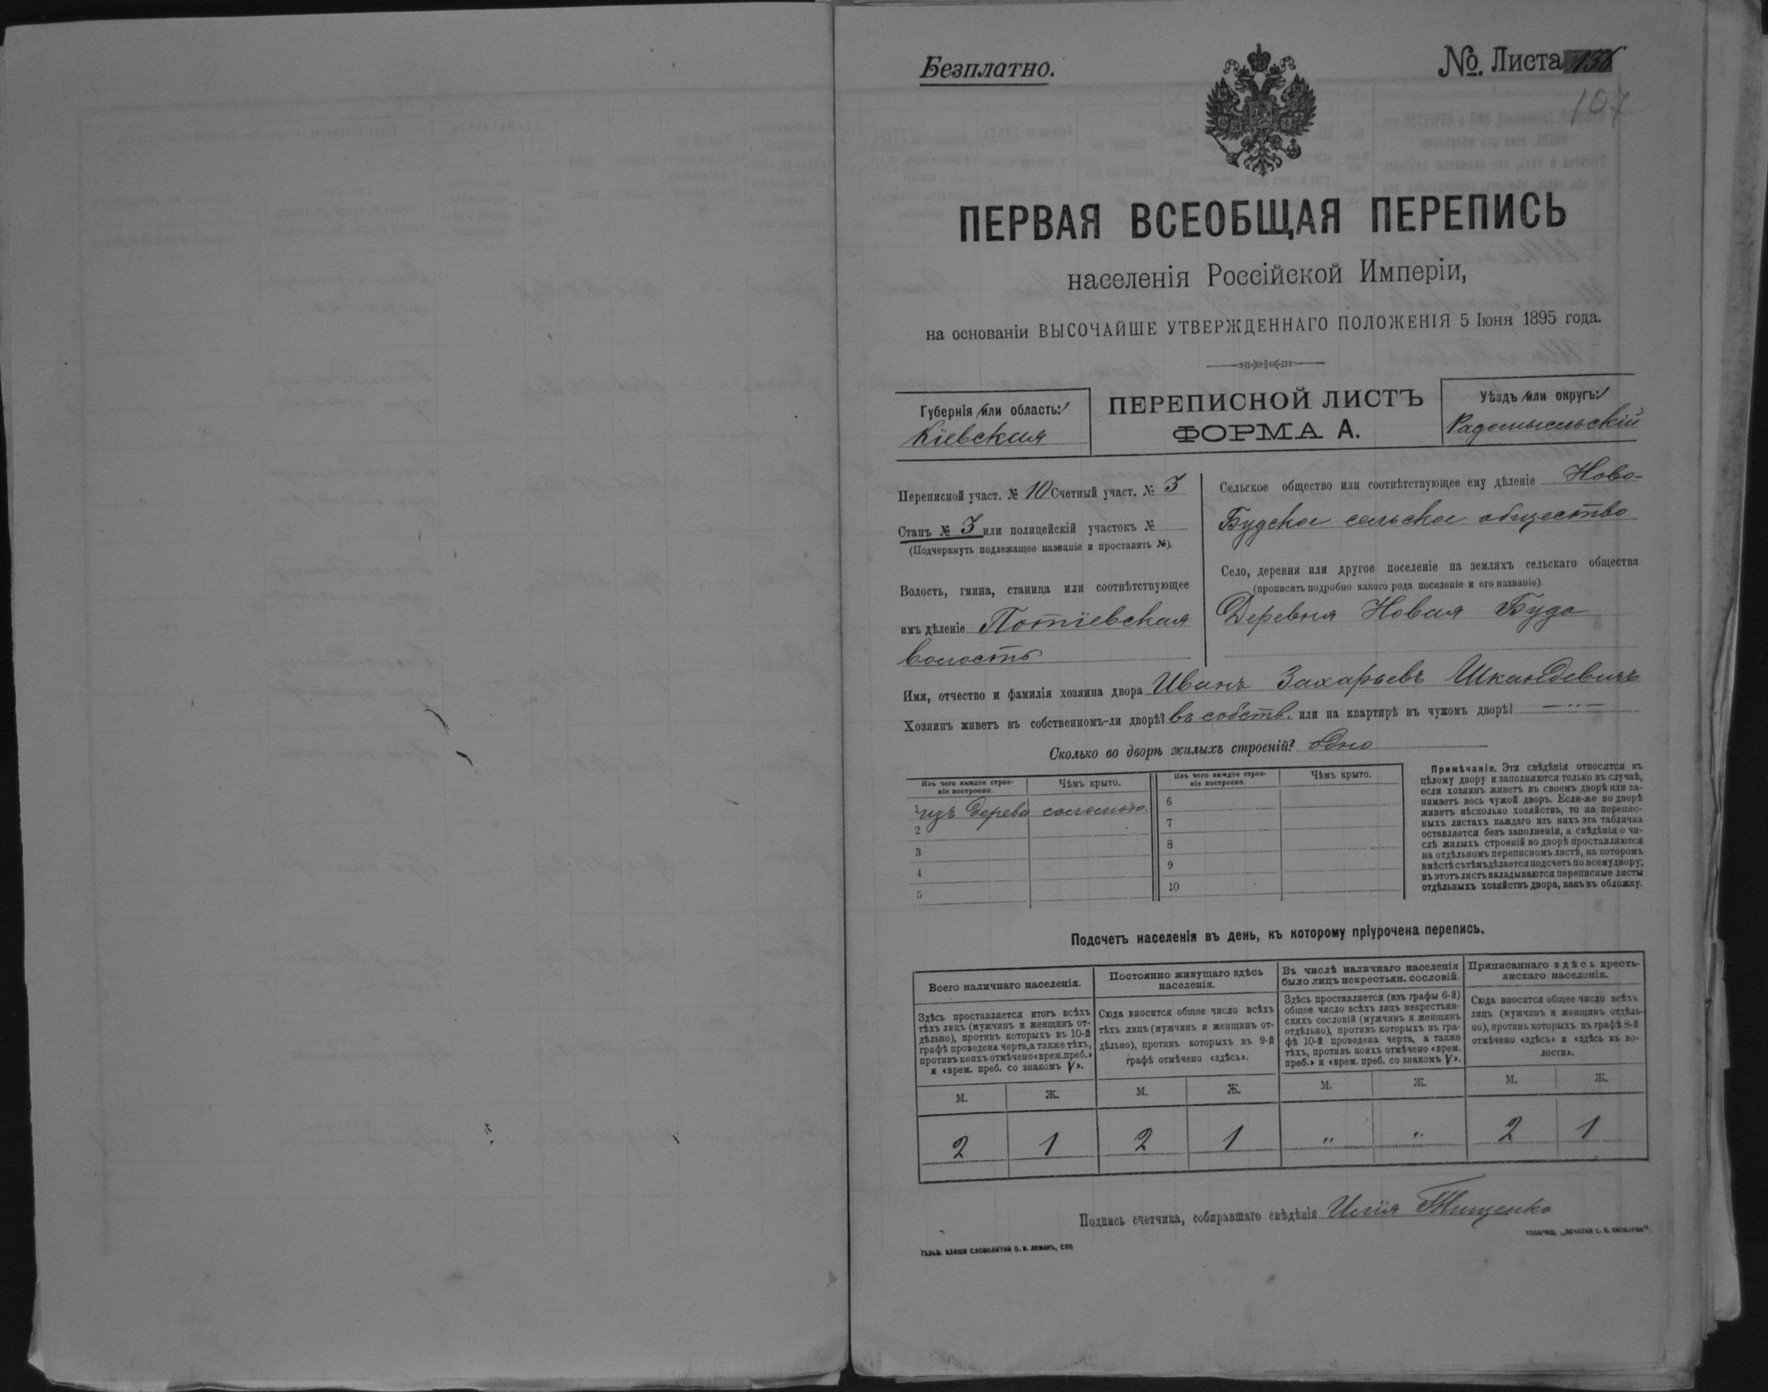 Безплатно.
№. Листа
107
ПЕРВАЯ ВСЕОБЩАЯ ПЕРЕПИСЬ
населенія Россійской Имперіи,
на основаніи ВЫСОЧАЙШЕ УТВЕРЖДЕННАГО ПОЛОЖЕНІЯ 5 Іюня 1895 года.
Губернія или область:
Кіевская
ПЕРЕПИСНОЙ ЛИСТЪ
ФОРМА А.
Уѣздъ или округъ:
Радомысльскій
Переписной участ. № 10 Счетный участ. № 3
Станъ № 3 или полицейскій участокъ №
(Подчеркнуть подлежащее названіе и проставить №).
Волость, гмина, станица или соотвѣтствующее
имъ дѣленіе Потіевская
волость
Сельское общество или соотвѣтствующее ему дѣленіе Ново-
Будское сельское общество
Село, деревня или другое поселеніе на земляхъ сельскаго общества
(прописать подробно какого рода поселеніе и его названіе).
Деревня Новая Буда
Имя, отчество и фамилія хозяина двора Иванъ Захарьевъ Шкандевичъ
Хозяинъ живетъ въ собственномъ-ли дворѣ? въ собств. или на квартирѣ въ чужомъ дворѣ? — „ —
Сколько во дворѣ жилыхъ строеній? одно
Изъ чего каждое строе-
ніе построено.
Чѣмъ крыто.
Изъ чего каждое строе-
ніе построено.
Чѣмъ крыто.
1 изъ дерева соломою.
2
3
4
5
6
7
8
9
10
Примѣчаніе. Эти свѣдѣнія относятся къ
цѣлому двору и заполняются только въ случаѣ,
если хозяинъ живетъ въ своемъ дворѣ или за-
нимаетъ весь чужой дворъ. Если-же по дворѣ
живетъ нѣсколько хозяйствъ, то на перепис-
ныхъ листахъ каждаго изъ нихъ эта табличка
оставляется безъ заполненія, а свѣдѣнія о чи-
слѣ жилыхъ строеній во дворѣ проставляются
на отдѣльномъ переписномъ листѣ, на которомъ
вмѣстѣ съ тѣмъ дѣлается подсчетъ по всему двору;
въ этотъ листъ вкладываются переписные листы
отдѣльныхъ хозяйствъ двора, какъ въ обложку.
Подсчетъ населенія въ день, къ которому пріурочена перепись.
Всего наличнаго населенія.
Здѣсь проставляется итогъ всѣхъ
тѣхъ лицъ (мужчинъ и женщинъ от-
дѣльно), противъ которыхъ въ 10-й
графѣ проведена черта, а также тѣхъ,
противъ коихъ отмѣчено «врем. преб.»
и «врем. преб. со знакомъ V».
М. Ж.
2 1
Постоянно живущаго здѣсь
населенія.
Сюда вносится общее число всѣхъ
тѣхъ лицъ (мужчинъ и женщинъ от-
дѣльно), противъ которыхъ въ 9-й
графѣ отмѣчено «здѣсь».
М. Ж.
2 1
Въ числѣ наличнаго населенія
было лицъ некрестьян. сословій.
Здѣсь проставляется (изъ графы 6-й)
общее число всѣхъ лицъ некрестьян-
скихъ сословій (мужчинъ и женщинъ
отдѣльно), противъ которыхъ въ гра-
фѣ 10-й проведена черта, а также
тѣхъ, противъ коихъ отмѣчено «врем.
преб.» и «врем. преб. со знакомъ V».
М. Ж.
„ „
Приписаннаго здѣсь кресть-
янскаго населенія.
Сюда вносится общее число всѣхъ
лицъ (мужчинъ и женщинъ отдѣль-
но), противъ которыхъ въ графѣ 8-й
отмѣчено «здѣсь» и «здѣсь къ во-
лости».
М. Ж.
2 1
Подпись счетчика, собиравшаго свѣдѣнія Илія Тищенко
ГАЛЬВ. КЛИШИ СЛОВОЛИТНИ О. И. ЛЕМАНЪ, СПБ
ТОВАРИЩ. „ПЕЧАТНЯ С. П. ЯКОВЛЕВА“.